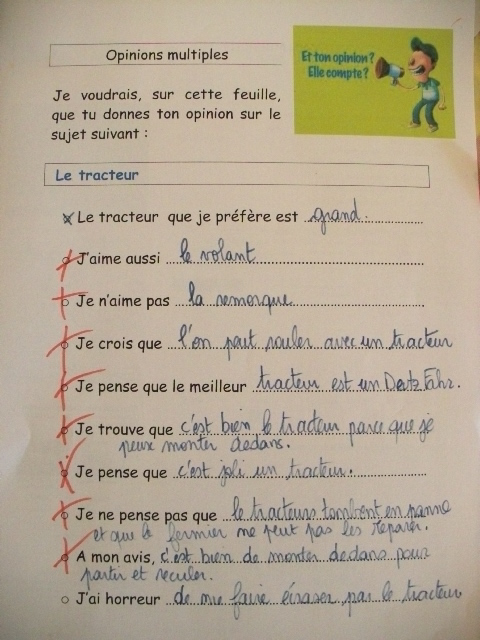 Opinions multiples
Et ton opinion ?
Elle compte ?
Je voudrais, sur cette feuille,
que tu donnes ton opinion sur le
sujet suivant :
Le tracteur
Le tracteur que je préfère est grand.
J'aime aussi le volant
Je n'aime pas la remorque
Je crois que l'on peut rouler avec un tracteur
Je pense que le meilleur tracteur est un Deutz Fahr.
Je trouve que c'est bien le tracteur parce que je
peux monter dedans.
Je pense que c'est joli un tracteur.
Je ne pense pas que le tracteurs tombent en panne
et que le fermier ne peut pas les réparer.
A mon avis, c'est bien de monter dedans pour
partir et reculer.
J'ai horreur de me faire écraser par le tracteur